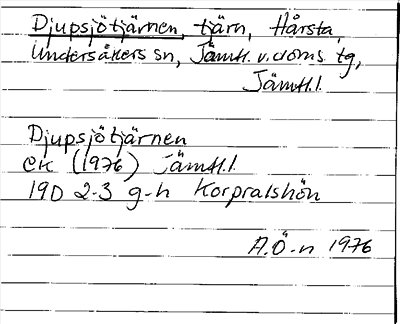 Djupsjötjärnen, tjärn, Hårsta,
Undersåkers sn, Jämtl. v. doms. tg,
Jämtl. l.
Djupsjötjärnen
EK (1976) Jämtl. l.
19D 2-3 g-h Korpralshön
A.Ö-n 1976